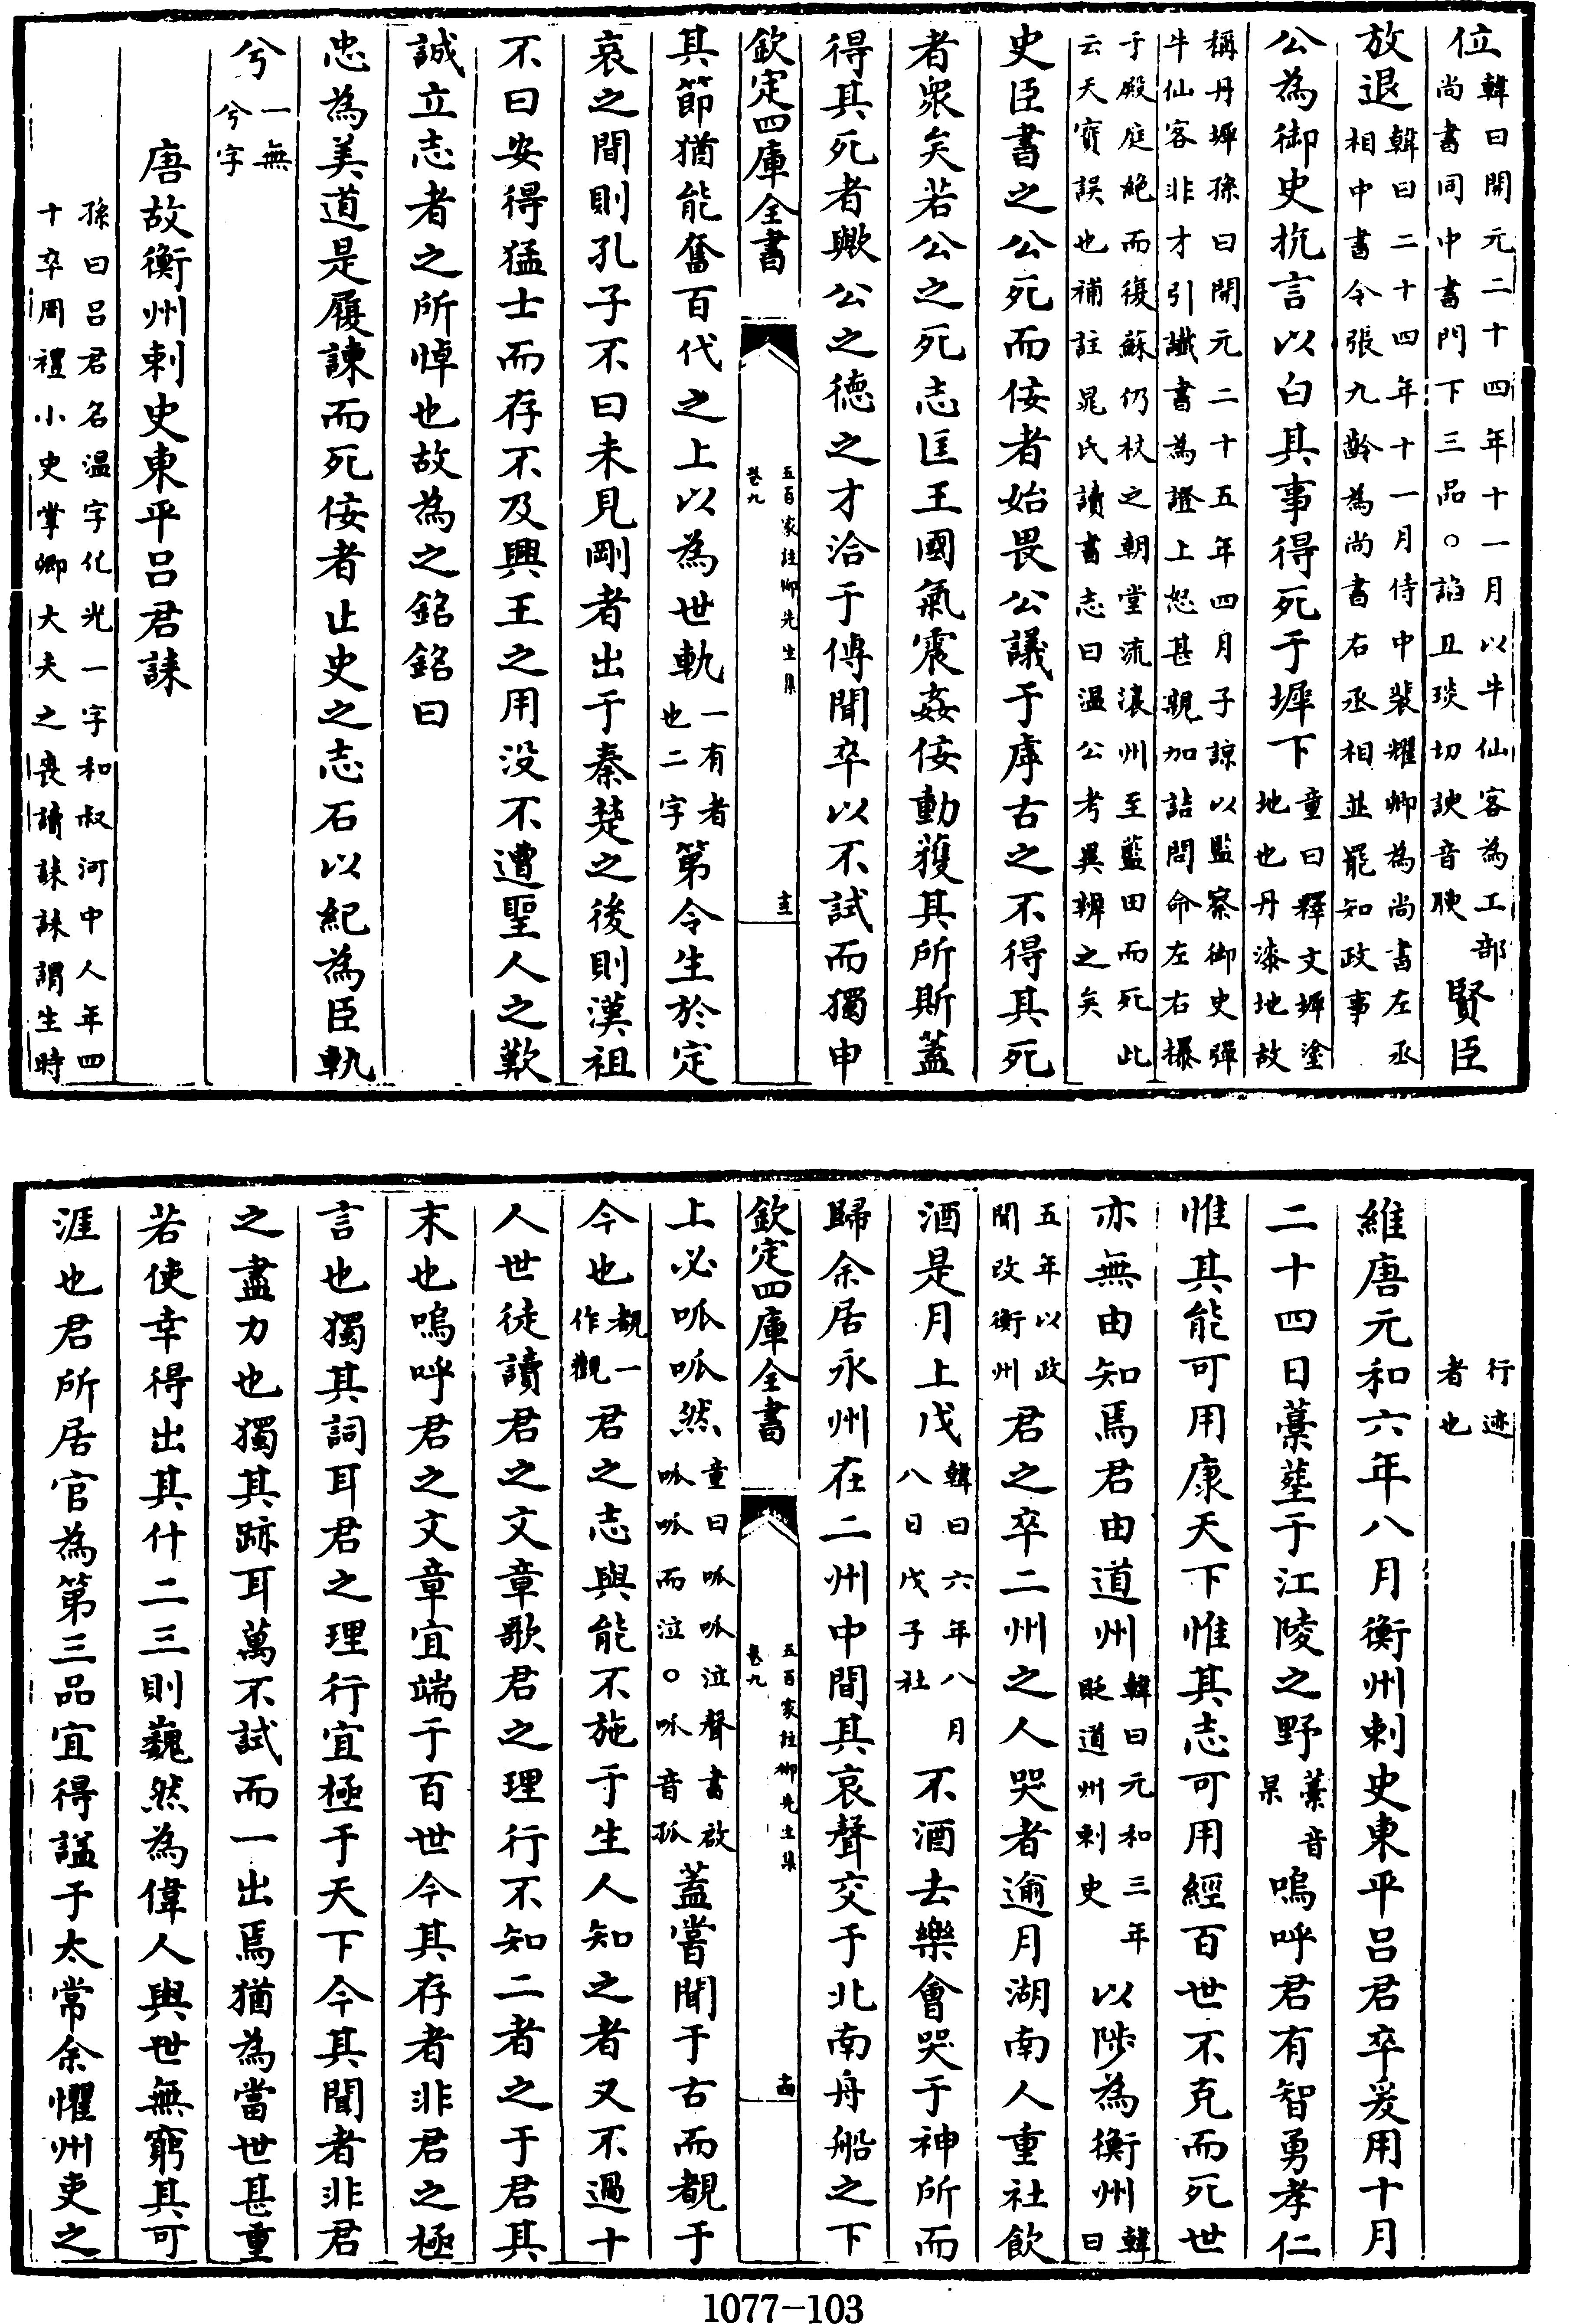 位韓曰開元二十四年十一月以牛仙客為工部尚書同中書門下三品○諂丑琰切諛音腴賢臣
放退韓曰二十四年十一月侍中裴耀卿為尚書左丞相中書令張九齡為尚書右丞相並罷知政事
公為御史抗言以白其事得死于墀下童曰釋文墀塗地也丹漆地故
稱丹墀孫曰開元二十五年四月子諒以監察御史彈牛仙客非才引讖書為證上怒甚親加詰問命左右㩧
于殿庭絶而復蘇仍杖之朝堂流瀼州至藍田而死此云天寶誤也補註晁氏讀書志曰温公考異辨之矣
史臣書之公死而佞者始畏公議于虖古之不得其死
者衆矣若公之死志匡王國氣震姦佞動獲其所斯蓋
得其死者歟公之徳之才洽于傳聞卒以不試而獨申
欽定四庫全書
五百家註柳先生集
卷九
圭
其節猶能奮百代之上以為世軌一有者也二字第令生於定
哀之間則孔子不曰未見剛者出于秦楚之後則漢祖
不曰安得猛士而存不及興王之用没不遭聖人之歎
誠立志者之所悼也故為之銘銘曰
忠為美道是履諫而死佞者止史之志石以紀為臣軌
兮一無兮字
唐故衡州刺史東平呂君誄
孫曰呂君名温字化光一字和叔河中人年四十卒周禮小史掌卿大夫之喪讀誄誄謂生時
行迹者也
維唐元和六年八月衡州刺史東平呂君卒爰用十月
二十四日藁塟于江陵之野藁音杲嗚呼君有智勇孝仁
惟其能可用康天下惟其志可用經百世不克而死世
亦無由知焉君由道州韓曰元和三年貶道州刺史以陟為衡州韓曰
五年以政聞改衡州君之卒二州之人哭者逾月湖南人重社飲
酒是月上戊韓曰六年八月八日戊子社不酒去樂會哭于神所而
歸余居永州在二州中間其哀聲交于北南舟船之下
欽定四庫全書
五百家註柳先生集
卷九
上必呱呱然童曰呱呱泣聲書啟呱呱而泣○呱音孤蓋嘗聞于古而覩于
今也覩一作觀君之志與能不施于生人知之者又不過十
人世徒讀君之文章歌君之理行不知二者之于君其
末也嗚呼君之文章宜端于百世今其存者非君之極
言也獨其詞耳君之理行宜極于天下今其聞者非君
之盡力也獨其跡耳萬不試而一出焉猶為當世甚重
若使幸得出其什二三則巍然為偉人與世無窮其可
涯也君所居官為第三品宜得謚于太常余懼州吏之
1077-103